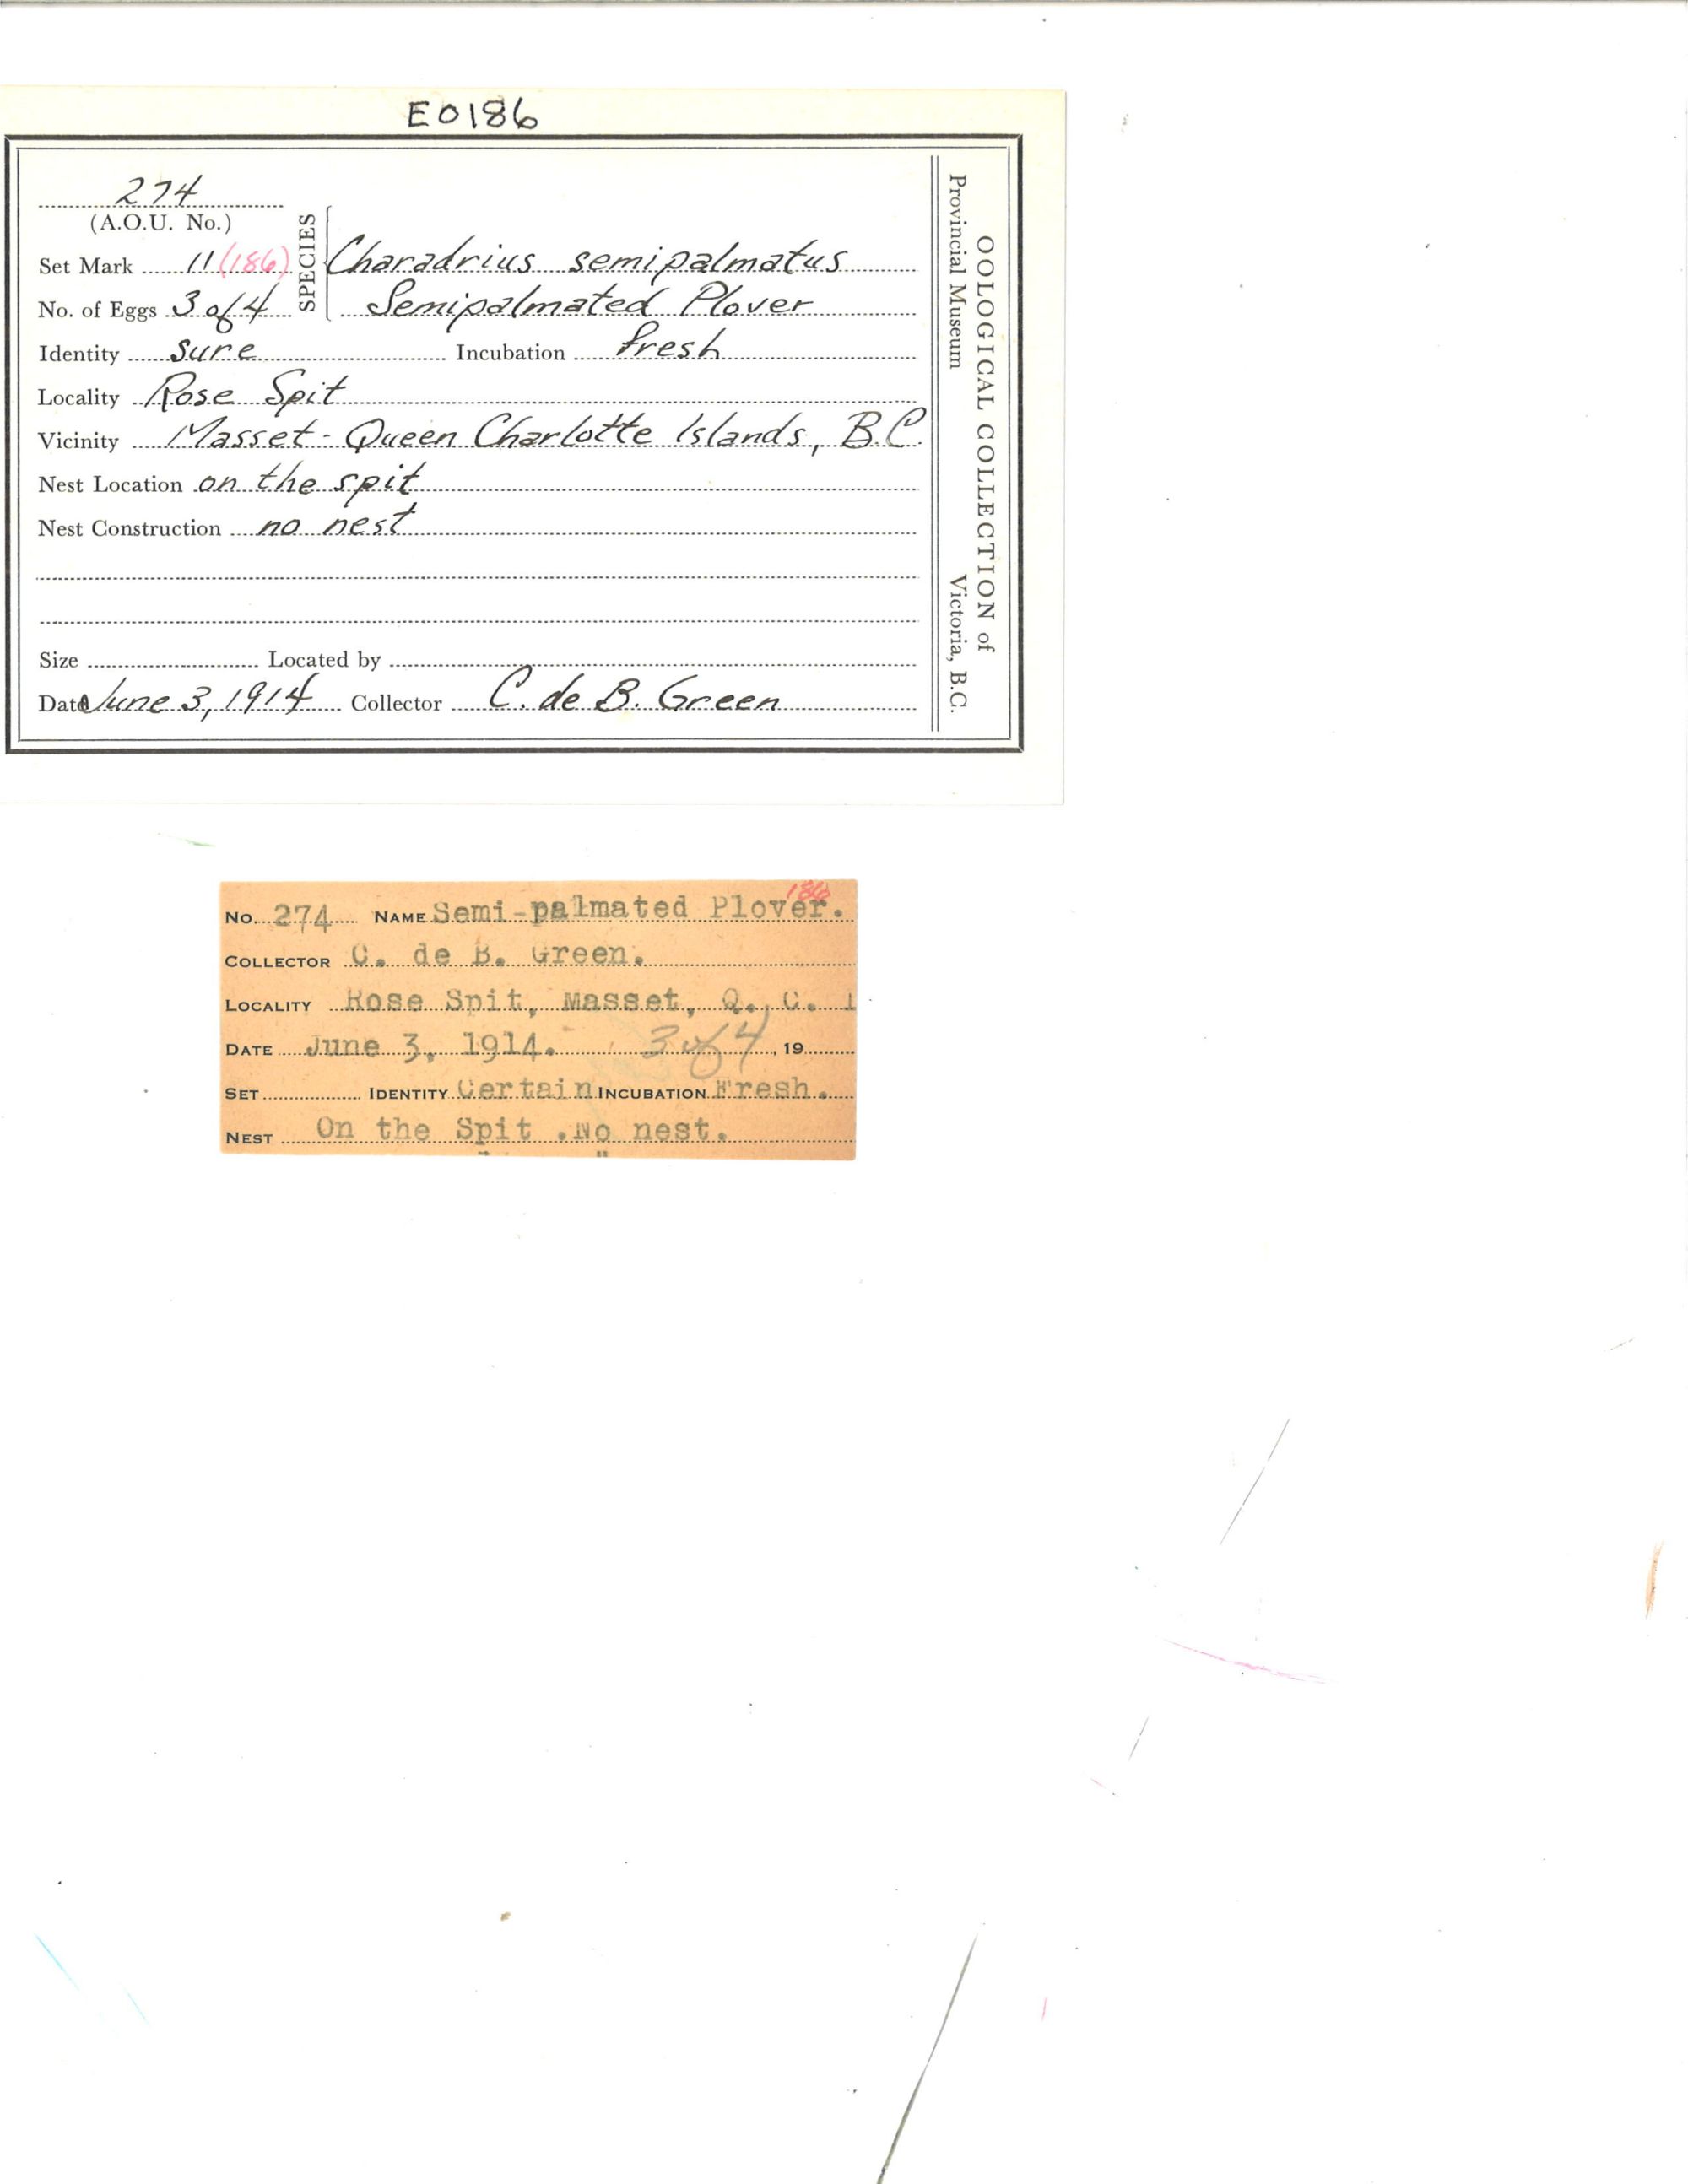 E0186
274
(A.O.U. No.)
Set Mark 11 (186)
No. of Eggs 3 of 4
SPECIES
Charadrius semipalmatus
Semipalmated Plover
Identity sure Incubation fresh
Locality Rose Spit
Vicinity Masset - Queen Charlotte Islands, B.C.
Nest Location on the spit
Nest Construction no nest
Size Located by
Date June 3, 1914 Collector C. de B. Green
OOLOGICAL COLLECTION of
Provincial Museum Victoria, B.C.
186
No. 274 NAME Semi-palmated Plover.
COLLECTOR C. de B. Green.
LOCALITY Rose Spit, Masset, Q. C. I
DATE June 3, 1914. 3 of 4, 19
SET IDENTITY Certain INCUBATION Fresh.
NEST On the Spit .No nest.